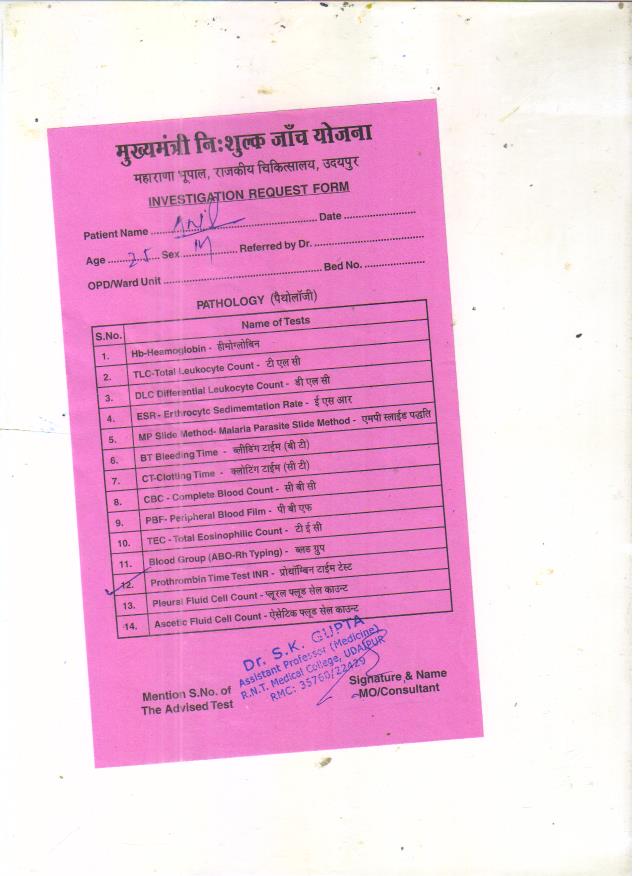 मुख्यमंत्री निःशुल्क जाँच योजना
महाराणा भूपाल, राजकीय चिकित्सालय, उदयपुर
INVESTIGATION REQUEST FORM
Patient Name Anil Date
Age 25 Sex M Referred by Dr.
OPD/Ward Unit Bed No.
PATHOLOGY (पैथोलॉजी)
S.No. Name of Tests
1. Hb-Heamoglobin - हीमोग्लोबिन
2. TLC-Total Leukocyte Count - टी एल सी
3. DLC Differential Leukocyte Count - डी एल सी
4. ESR - Erthrocytc Sedimemtation Rate - ई एस आर
5. MP Slide Method- Malaria Parasite Slide Method - एमपी स्लाईड पद्धति
6. BT Bleeding Time - ब्लीडिंग टाईम (बी टी)
7. CT-Clotting Time - क्लोटिंग टाईम (सी टी)
8. CBC - Complete Blood Count - सी बी सी
9. PBF- Peripheral Blood Film - पी बी एफ
10. TEC - Total Eosinophilic Count - टी ई सी
11. Blood Group (ABO-Rh Typing) - ब्लड ग्रुप
12. Prothrombin Time Test INR - प्रोथॉम्बिन टाईम टेस्ट
13. Pleural Fluid Cell Count - प्लूरल फ्लूड सेल काउन्ट
14. Ascetic Fluid Cell Count - ऐसेटिक फ्लूड सेल काउन्ट
Dr. S.K. GUPTA
Assistant Professor (Medicine)
R.N.T. Medical College, UDAIPUR
RMC: 35760/22429
Mention S.No. of
The Advised Test
Signature & Name
MO/Consultant